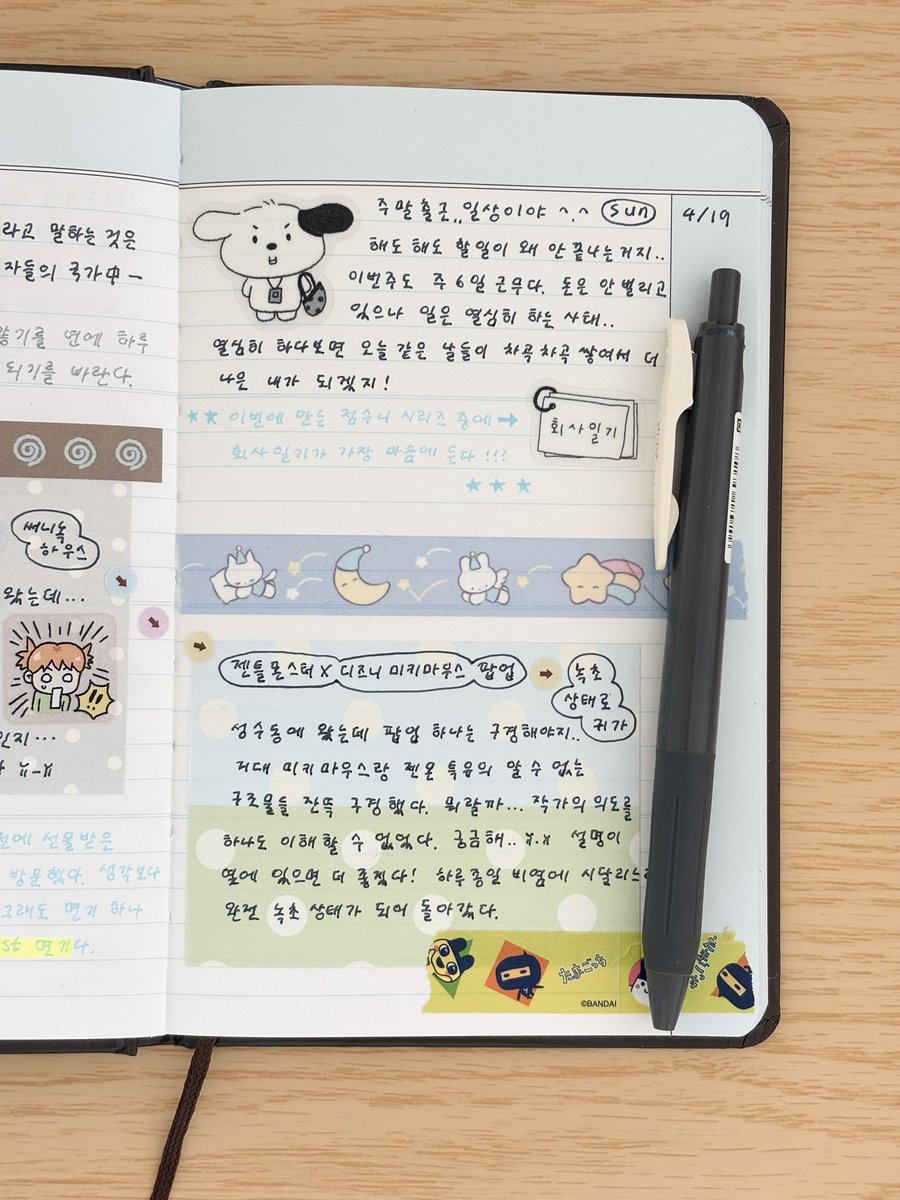 라고 말하는 것은
자들의 국가中ー
기를 면에 하루
되기를 바란다.
써니녹
하우스
왔는데...
인지...
ㅠ-ㅠ
전에 선물받은
방문했다. 생각보다
그래도 면기 하나
st 면기다.
주말출근,, 일상이야 ^.^ sun
4/19
해도 해도 할일이 왜 안 끝나는거지..
이번주도 주 6일 근무다. 돈은 안 벌리고
있으나 일은 열심히 하는 사태..
열심히 하다보면 오늘 같은 날들이 차곡차곡 쌓여서 더
나은 내가 되겠지!
★★ 이번에 만든 점수니 시리즈 중에 →
회사일기가 가장 마음에 든다!!!
★ ★ ★
회사일기
젠틀몬스터 X 디즈니 미키마우스 팝업
녹초
상태로
귀가
성수동에 왔는데 팝업 하나는 구경해야지..
거대 미키마우스랑 젠몬 특유의 알 수 없는
구조물들 잔뜩 구경했다. 뭐랄까... 작가의 의도를
하나도 이해할 수 없었다. 궁금해.. ㅠ.ㅠ 설명이
옆에 있으면 더 좋겠다! 하루종일 비염에 시달리느라
완전 녹초상태가 되어 돌아갔다.
たまごっち
©BANDAI